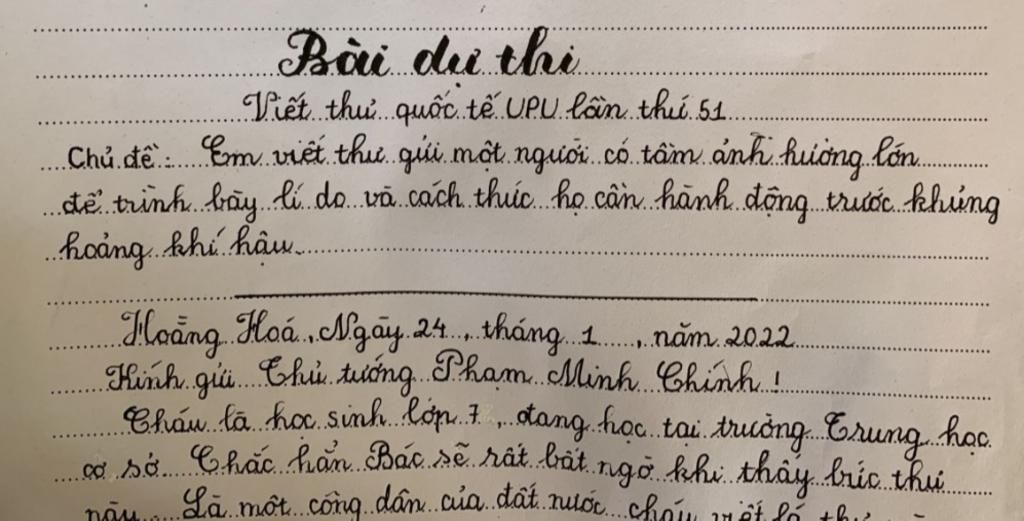 Bài dự thi
Viết thư quốc tế UPU lần thứ 51
Chủ đề: Em viết thư gửi một người có tầm ảnh hưởng lớn
để trình bày lí do và cách thức họ cần hành động trước khủng
hoảng khí hậu.
Hoằng Hoá, Ngày 24, tháng 1, năm 2022
Kính gửi Thủ tướng Phạm Minh Chính!
Cháu là học sinh lớp 7, đang học tại trường Trung học
cơ sở. Chắc hẳn Bác sẽ rất bất ngờ khi thấy bức thư
này. Là một công dân của đất nước cháu viết lá thư